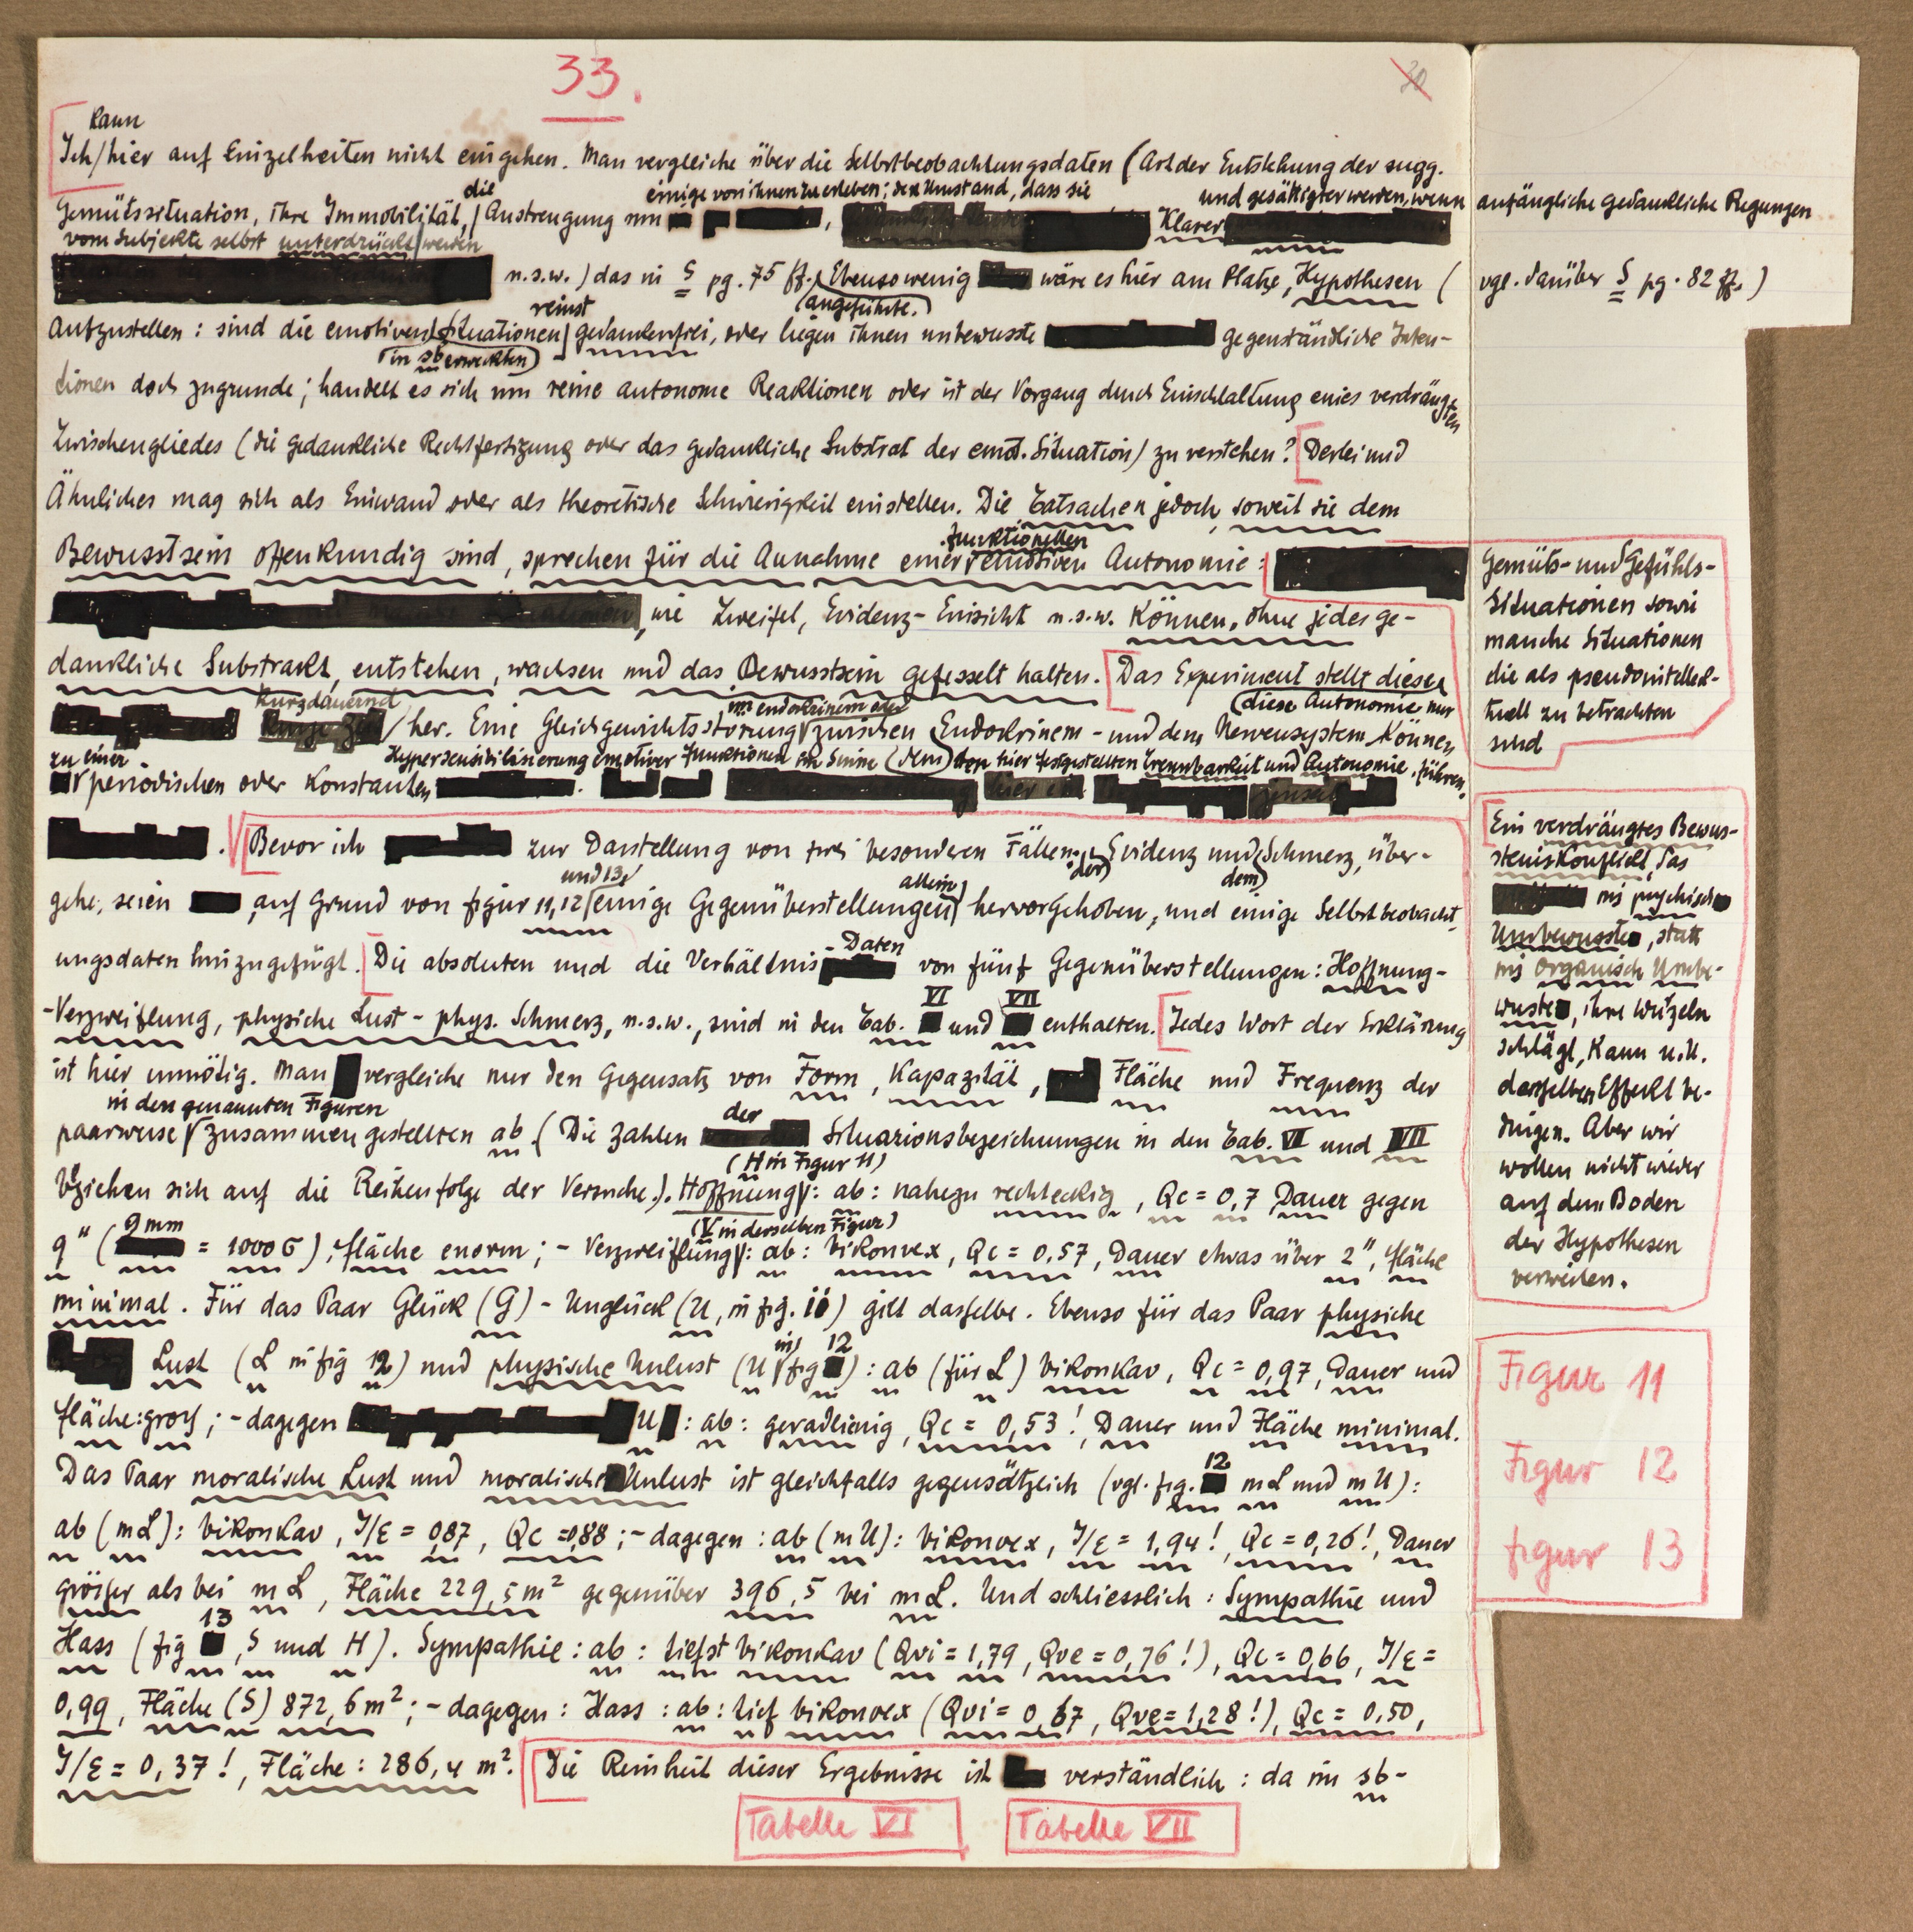 33.
30
kann
Ich/hier auf Einzelheiten nicht eingehen. Man vergleiche über die Selbstbeobachtungsdaten (Art der Entstehung der sugg.
die einige von ihnen zu erleben; den Umstand, dass sie und gesättigter werden, wenn anfängliche gedankliche Regungen
Gemütssituation, ihre Immobilität, / Anstrengung um , Klarer
vom Subjekte selbst unterdrückt werden
u.s.w.) das in S pg. 75 ff. Ebensowenig wäre es hier am Platze, Hypothesen ( vgl. darüber S pg. 82 ff.)
reinst (angeführte.)
Aufzustellen: sind die emotiven Situationen gedankenfrei, oder liegen ihnen unbewusste gegenständliche Inten-
(in sb erweckten)
tionen doch zugrunde; handelt es sich um reine autonome Reaktionen oder ist der Vorgang durch Einschaltung eines verdrängten
Zwischengliedes (die gedankliche Rechtfertigung oder das gedankliche Substrat der emot. Situation) zu verstehen? Derlei und
Ähnliches mag sich als Einwand oder als theoretische Schwierigkeit einstellen. Die Tatsachen jedoch, soweit sie dem
funktionellen
Bewusstsein offenkundig sind, sprechen für die Annahme einer emotiven Autonomie:
wie Zweifel, Evidenz-Einsicht u.s.w. Können, ohne jedes ge-
dankliche Substrakt, entstehen, wachsen und das Bewusstsein gefesselt halten. Das Experiment stellt dieser
kurzdauernd im endokrinem oder (diese Autonomie nur
/ her. Eine Gleichgewichtsstörung zwischen Endokrinem- und dem Nervensystem Können
zu einer Hypersensibilisierung emotiver Funktionen im Sinne (dem) der hier festgestellten Trennbarkeit und Autonomie, führen.
periodischen oder Konstanten
. Bevor ich zur Darstellung von zwei besonderen Fällen: Evidenz und Schmerz, über-
und 13, allein der) dem)
gehe, seien , auf Grund von Figur 11, 12 einige Gegenüberstellungen hervorgehoben, und einige Selbstbeobacht-
- Daten
ungsdaten hinzugefügt. Die absoluten und die Verhältnis von fünf Gegenüberstellungen: Hoffnung-
VI VII
-Verzweiflung, physiche Lust - phys. Schmerz, u.s.w., sind in den Tab. und enthalten. Jedes Wort der Erklärung
ist hier unnötig. Man vergleiche nur den Gegensatz von Form, Kapazität, Fläche und Frequenz der
in den genannten Figuren der
paarweise zusammengestellten ab. (Die Zahlen Situazionsbezeichnungen in den Tab. VI und VII
(H in Figur 11)
beziehen sich auf die Reihenfolge der Versuche.). Hoffnung: ab: nahezu rechteckig, Qc = 0,7 Dauer gegen
9 mm (V in derselben Figur)
9" ( = 1000 σ), Fläche enorm; - Verzweiflung: ab: bikonvex, Qc = 0,57, Dauer etwas über 2", Fläche
minimal. Für das Paar Glück (G) - Unglück (U, in fig. 11) gilt dasselbe. Ebenso für das Paar physiche
in 12
Lust (L in fig 12) und physische Unlust (U fig ): ab (für L) bikonkav, Qc = 0,97, Dauer und
Fläche: gross; - dagegen U : ab: geradlinig, Qc = 0,53!, Dauer und Fläche minimal.
12
Das Paar moralische Lust und moralische Unlust ist gleichfalls gegensätzlich (vgl. fig. mL und mU):
ab (mL): bikonkav, I/ε = 0,87, Qc = 0,88; - dagegen: ab (mU): bikonvex, I/ε = 1,94!, Qc = 0,26!, Dauer
grösser als bei mL, Fläche 229,5 m² gegenüber 396,5 bei mL. Und schliesslich: Sympathie und
13
Hass (fig , S und H). Sympathie: ab: tiefst bikonkav (Qvi = 1,79, Qve = 0,76!), Qc = 0,66, I/ε =
0,99, Fläche (S) 872,6 m²; - dagegen: Hass: ab: tief bikonvex (Qvi = 0,67, Qve = 1,28!), Qc = 0,50,
I/ε = 0,37!, Fläche: 286,4 m². Die Reinheit dieser Ergebnisse ist verständlich: da im sb-
Tabelle VI Tabelle VII
Gemüts- und Gefühls-
Situationen sowie
manche Situationen
die als pseudointellek-
tuell zu betrachten
sind
Ein verdrängtes Bewus-
stseinskonflikt, das
ins psychisch
Unbewusste, statt
ins organisch Unbe-
wuste, ihre Wurzeln
schlägt, Kann u.U.
denselben Effekt be-
dingen. Aber wir
wollen nicht wieder
auf dem Boden
der Hypothesen
verweilen.
Figur 11
Figur 12
figur 13